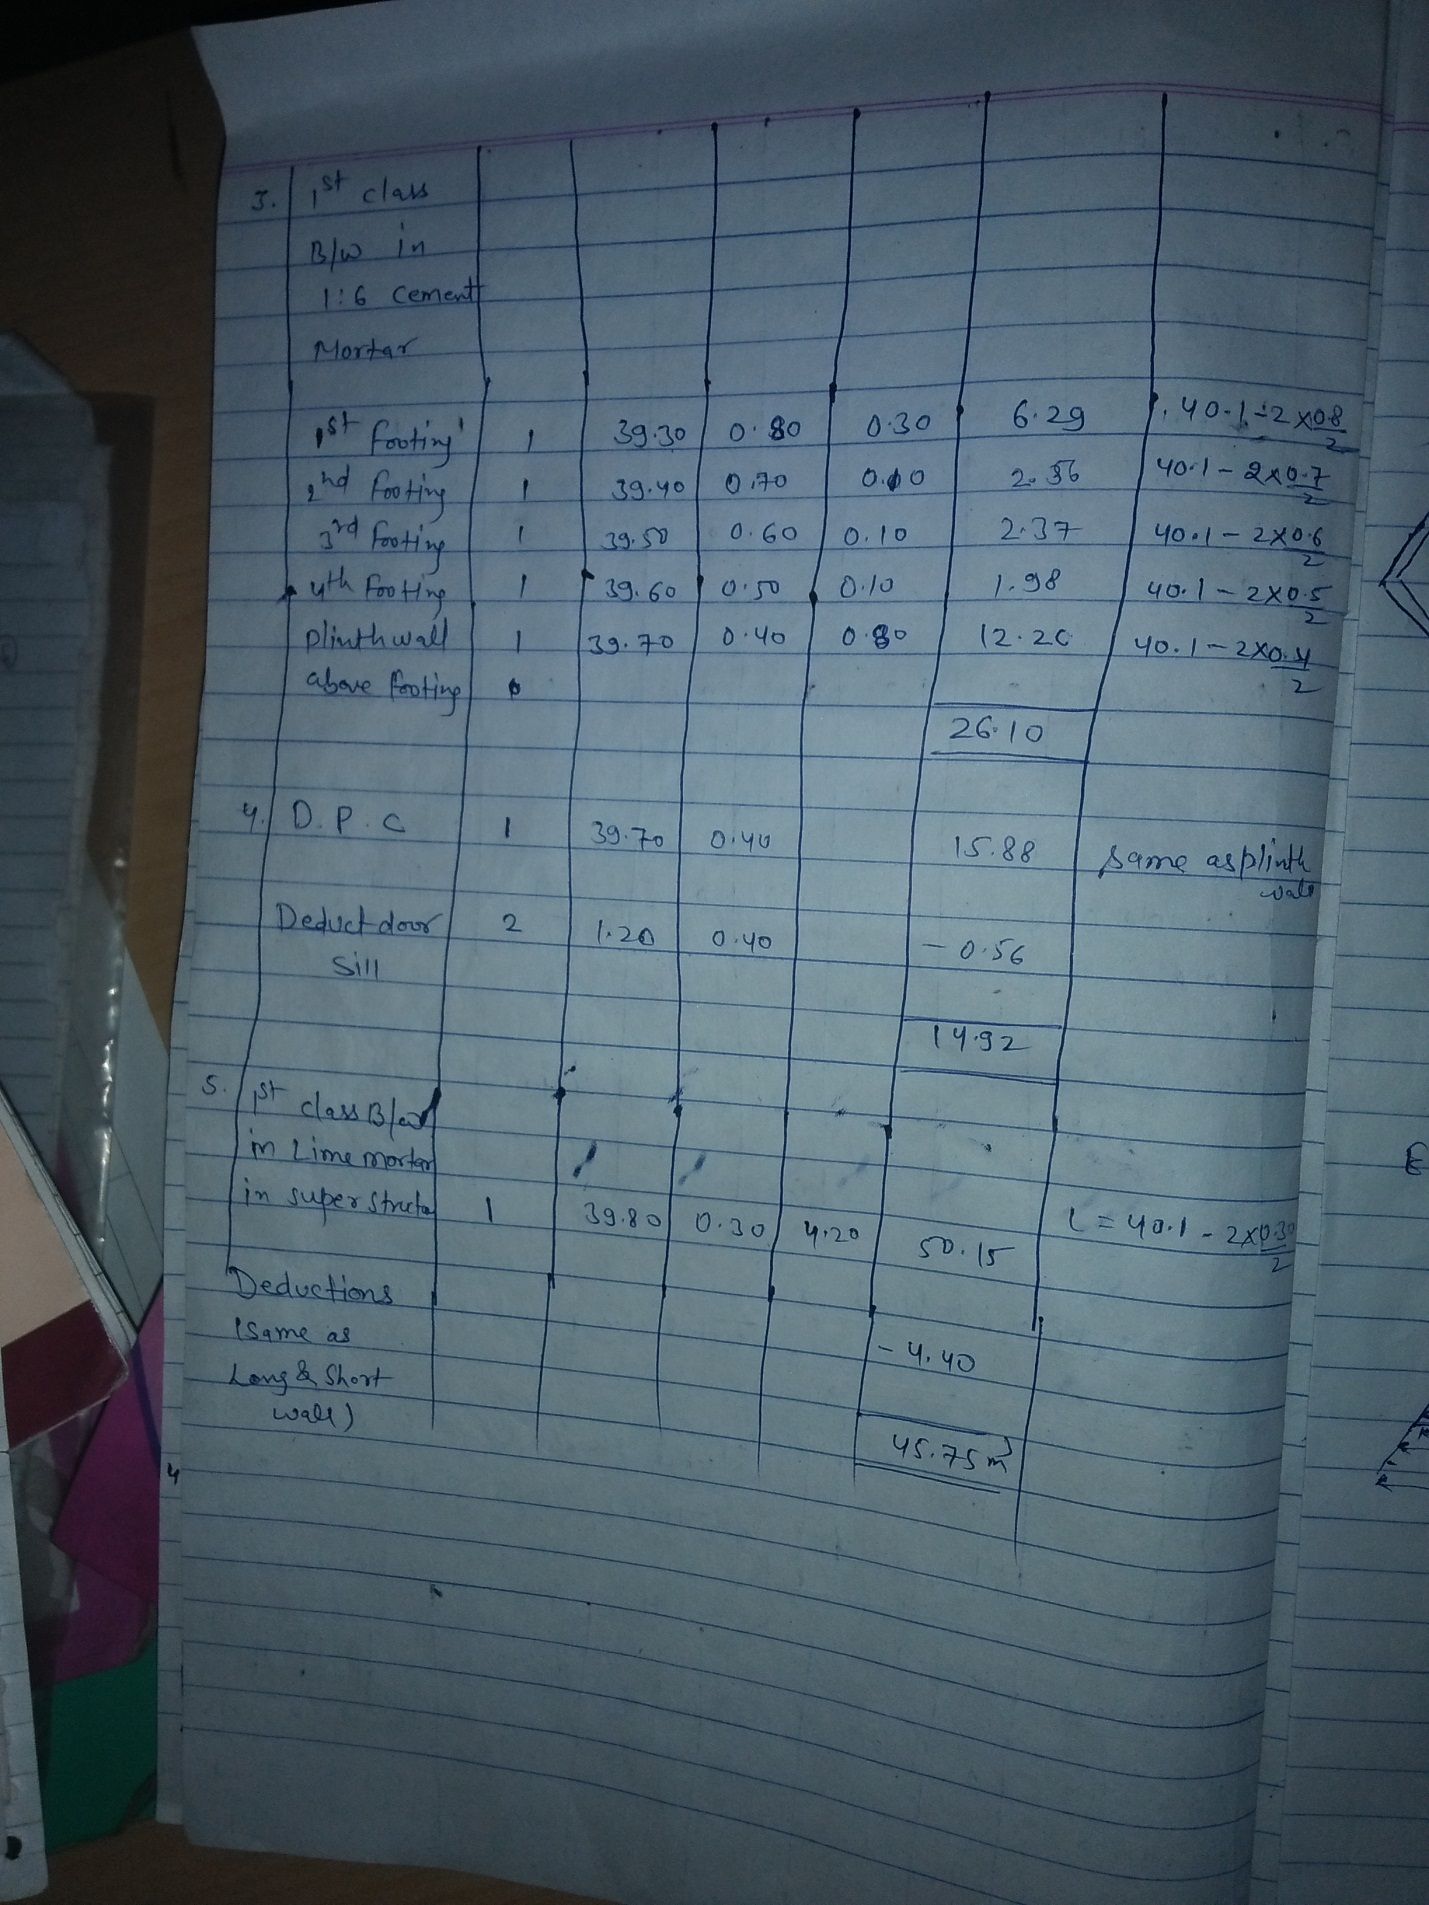 3. 1st class
B/W in
1:6 Cement
Mortar
1st footing 1 39.30 0.80 0.30 6.29 40.1-2×0.8/2
2nd footing 1 39.40 0.70 0.10 2.36 40.1-2×0.7/2
3rd footing 1 39.50 0.60 0.10 2.37 40.1-2×0.6/2
4th footing 1 39.60 0.50 0.10 1.98 40.1-2×0.5/2
plinth wall 1 39.70 0.40 0.80 12.20 40.1-2×0.4/2
above footing
26.10
4. D.P.C 1 39.70 0.40 15.88 same as plinth
wall
Deduct door 2 1.20 0.40 - 0.56
sill
14.92
5. 1st class B/w
in Lime mortar
in super structu 1 39.80 0.30 4.20 50.15 L = 40.1 - 2×0.30/2
Deductions
(Same as - 4.40
Long & Short
wall) 45.75 m3
4